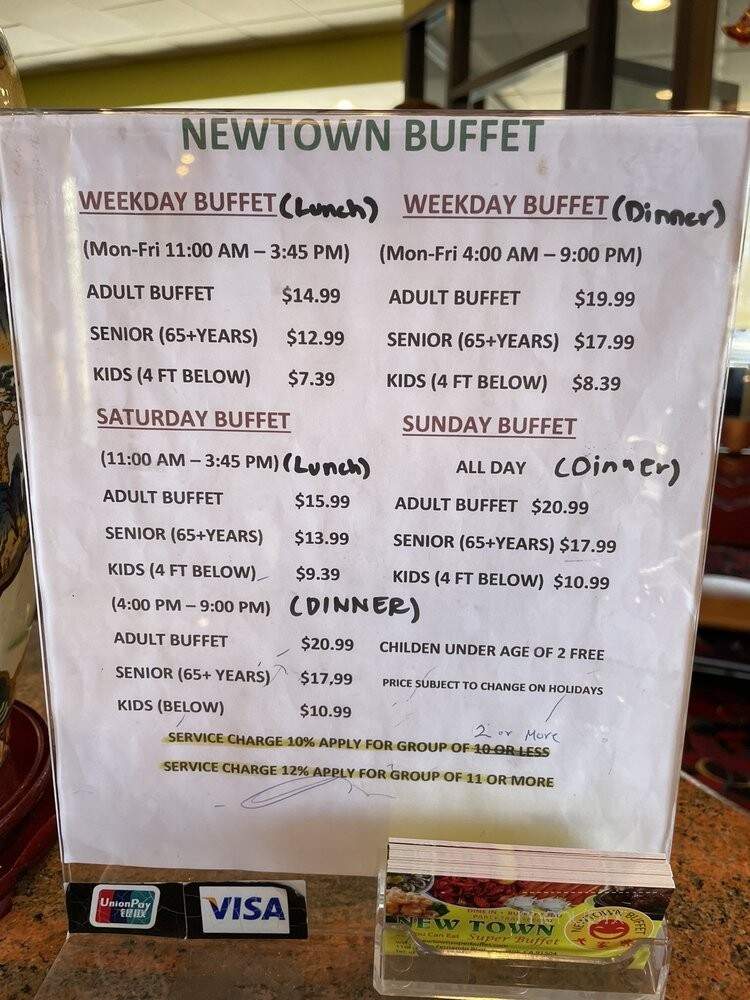 NEWTOWN BUFFET
WEEKDAY BUFFET (Lunch)
(Mon-Fri 11:00 AM – 3:45 PM)
ADULT BUFFET $14.99
SENIOR (65+YEARS) $12.99
KIDS (4 FT BELOW) $7.39
WEEKDAY BUFFET (Dinner)
(Mon-Fri 4:00 AM – 9:00 PM)
ADULT BUFFET $19.99
SENIOR (65+YEARS) $17.99
KIDS (4 FT BELOW) $8.39
SATURDAY BUFFET
(11:00 AM – 3:45 PM) (Lunch)
ADULT BUFFET $15.99
SENIOR (65+YEARS) $13.99
KIDS (4 FT BELOW) $9.39
(4:00 PM – 9:00 PM) (DINNER)
ADULT BUFFET $20.99
SENIOR (65+ YEARS) $17,99
KIDS (BELOW) $10.99
SUNDAY BUFFET
ALL DAY (Dinner)
ADULT BUFFET $20.99
SENIOR (65+YEARS) $17.99
KIDS (4 FT BELOW) $10.99
CHILDEN UNDER AGE OF 2 FREE
PRICE SUBJECT TO CHANGE ON HOLIDAYS
2 or More
SERVICE CHARGE 10% APPLY FOR GROUP OF 10 OR LESS
SERVICE CHARGE 12% APPLY FOR GROUP OF 11 OR MORE
UnionPay
银联
VISA
DINE IN
NEW TOWN
Super Buffet
You Can Eat
NEWTOWN BUFFET